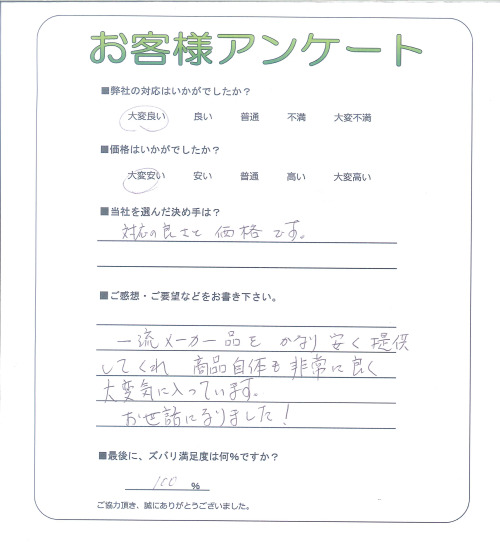 お客様アンケート
■弊社の対応はいかがでしたか？
大変良い 良い 普通 不満 大変不満
■価格はいかがでしたか？
大変安い 安い 普通 高い 大変高い
■当社を選んだ決め手は？
対応の良さと 価格 です。
■ご感想・ご要望などをお書き下さい。
一流メーカー品を かなり 安く 提供
してくれ 商品自体も 非常に良く
大変気に入っています。
お世話になりました！
■最後に、ズバリ満足度は何%ですか？
100 %
ご協力頂き、誠にありがとうございました。